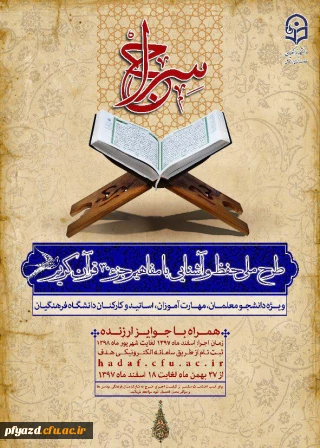 سراج
طرح ملی حفظ و آشنایی با مفاهیم جزء ۳۰ قرآن کریم
ویژه دانشجو معلمان، مهارت آموزان، اساتید و کارکنان دانشگاه فرهنگیان
همراه با جوایز ارزنده
زمان اجرا: اسفند ماه ۱۳۹۷ لغایت شهریور ماه ۱۳۹۸
ثبت نام از طریق سامانه الکترونیکی هدف
hadaf.cfu.ac.ir
از ۲۷ بهمن ماه لغایت ۱۸ اسفند ماه ۱۳۹۷
pfyazd.cfu.ac.ir